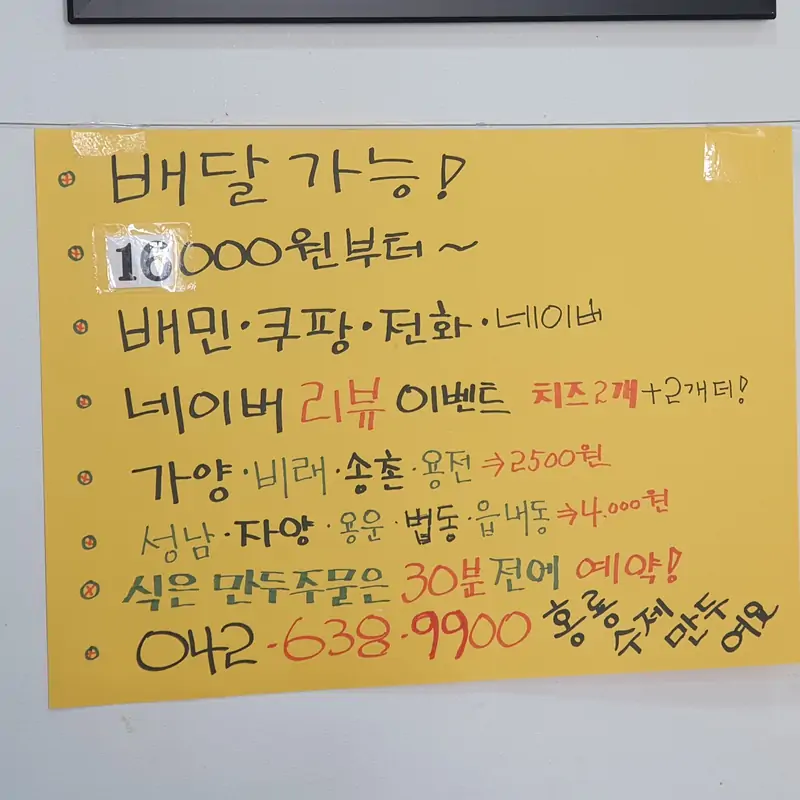 배달 가능!
16000원부터~
배민·쿠팡·전화·네이버
네이버 리뷰 이벤트 치즈2개+2개더!
가양·비래·송촌·용전⇒2500원
성남·자양·용운·법동·읍내동⇒4.000원
식은 만두주문은 30분전에 예약!
042-638-9900 홍롱수제만두여요